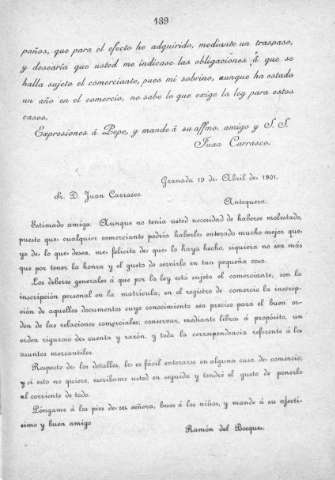 139
paños, que para el efecto he adquirido, mediante un traspaso,
y desearía que usted me indicase las obligaciones á que se
halla sujeto el comerciante, pues mi sobrino, aunque ha estado
un año en el comercio, no sabe lo que exige la ley para estos
casos.
Expresiones á Pepe, y mande á su affmo. amigo y S. S.
Juan Carrasco.
Granada 19 de Abril de 1901.
Sr. D. Juan Carrasco.
Antequera.
Estimado amigo: Aunque no tenía usted necesidad de haberse molestado,
puesto que cualquier comerciante podría haberle enterado mucho mejor que
yo de lo que desea, me felicito de que lo haya hecho, siquiera no sea más
que por tener la honra y el gusto de servirle en tan pequeña cosa.
Los deberes generales á que por la ley está sujeto el comerciante, son la
inscripción personal en la matrícula, en el registro de comercio la inscrip-
ción de aquellos documentos cuyo conocimiento sea preciso para el buen or-
den de las relaciones comerciales; conservar, mediante libros á propósito, un
orden riguroso de cuenta y razón, y toda la correspondencia referente á los
asuntos mercantiles.
Respecto de los detalles, le es fácil enterarse en alguna casa de comercio;
y si esto no quiere, escríbame usted en seguida y tendré el gusto de ponerle
al corriente de todo.
Póngame á los pies de su señora, besos á los niños, y mande á su afectí-
simo y buen amigo
Ramón del Bosque.